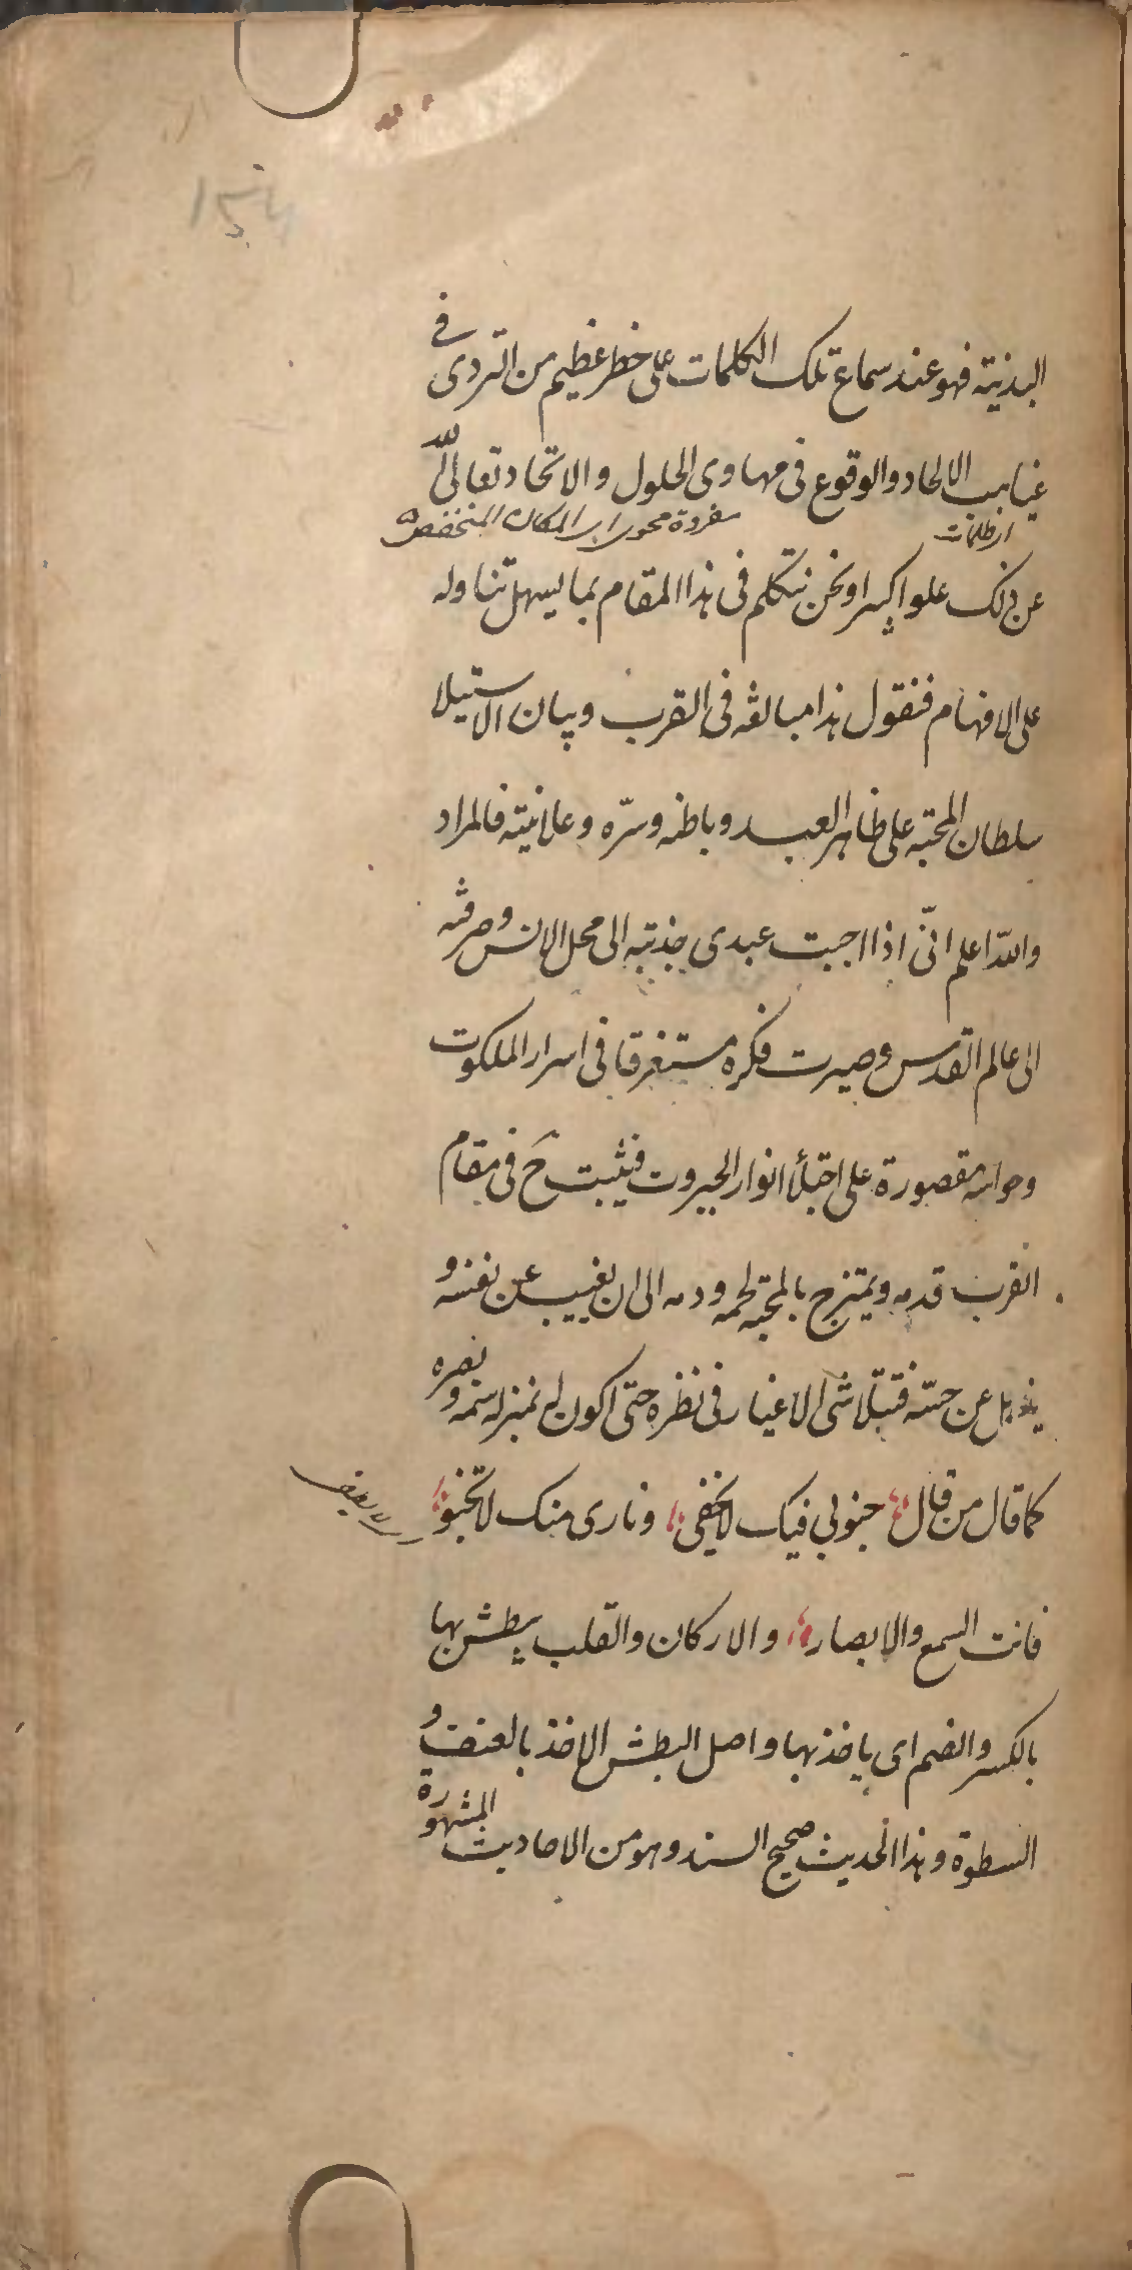 البدنية فهو عند سماع تلك الكلمات على خطر عظيم من التردى فى
غياهب الالحاد والوقوع فى مهاوى الحلول والاتحاد تعالى الله
اى ظلمات
المكان المنخفض
عن ذلك علوا كبيرا ونحن نتكلم فى هذا المقام بما يسهل تناوله
على الافهام فنقول هذا مبالغه فى القرب وبيان الاستيلا
سلطان المحبة على ظاهر العبد وباطنه وسرّه وعلانيته فالمراد
والله اعلم انّى اذا احببت عبدى جذبته الى محل الانس وصرفته
الى عالم القدس وصيرت فكره مستغرقا فى اسرار الملكوت
وحواسه مقصورة على اجتلأ انوار الجبروت فيثبت ح فى مقام
القرب قدمه ويمتزج بالمحبة لحمه ودمه الى ان يغيب عن نفسه و
يذهل عن حسّه فتتلاشى الاغيار فى نظره حتى اكون له بمنزله سمعه وبصره
كما قال من قال جنونى فيك لا يخفى ونارى منك لا تخبو
فانت السمع والابصار والاركان والقلب يبطش بها
بالكسر والضم اى ياخذ بها واصل البطش الاخذ بالعنف و
السطوة وهذا الحديث صحيح السند وهو من الاحاديث المشهورة